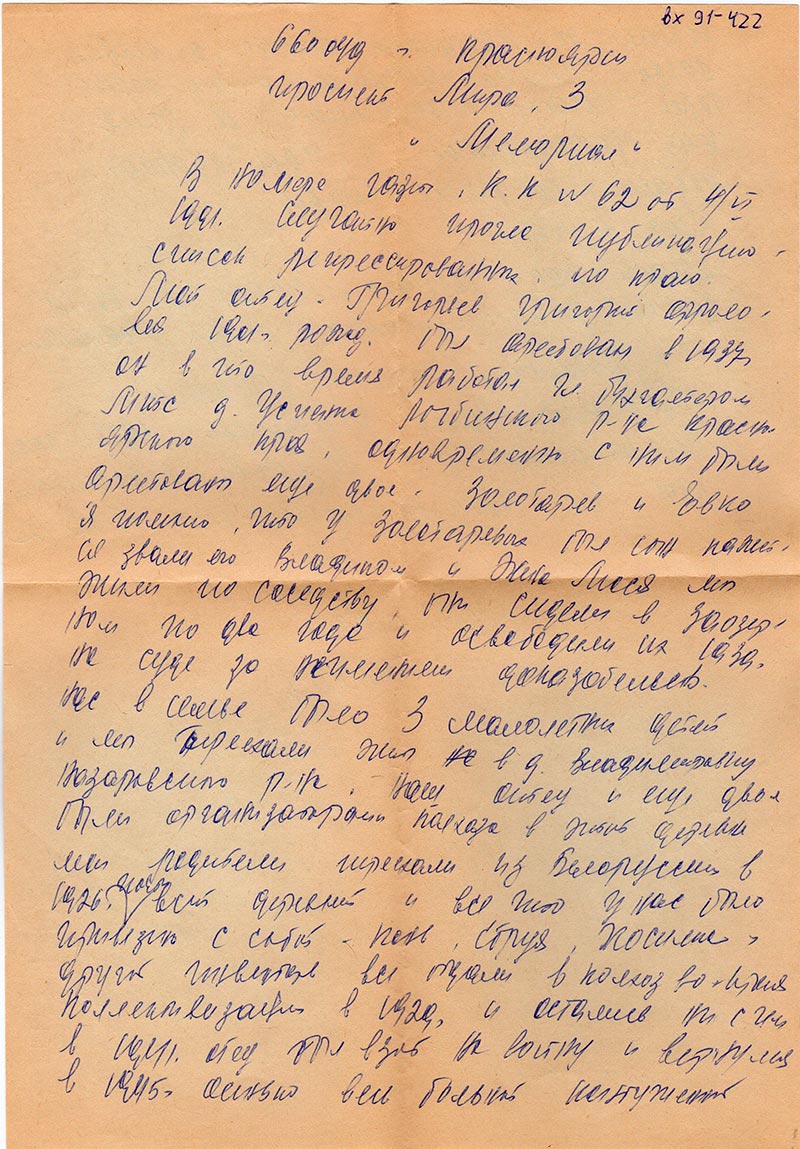 вх 91-422
660049 г. Красноярск
проспект Мира, 3
"Мемориал"
В номере газеты К.К N 62 от 4/VI
1991. Случайно прочла публикацию -
список репрессированных по краю.
Мой отец - Григорьев Григорий
вич 1901 рожд. был арестован в 1937,
он в это время работал гл. бухгалтером
МТС д. Р-на Красно
ярского края, одновременно с ним были
арестованы еще двое. Золотарев и Евко
я помню, что у Золотаревых был сын
ся звали его Владиком и Люся мы
жили по соседству, они сидели в
ном по два года и освободили их 1939,
на суде за неимением доказательств.
нас в семье было 3 малолетних детей
и мы переехали жить в д. Владимировку
Назаровского р-на. Наш отец и еще двое
были организаторами колхоза в этой деревне
мои родители переехали из Белоруссии в
1926г. почти всей деревней и все что у нас было
привезли с собой - кони, сбруя, косилки,
другой инвентарь все отдали в колхоз во время
коллективизации в 1929, и остались ни с чем
в 1941г. отец был взят на войну и вернулся
в 1945г. осенью весь больной контуженный